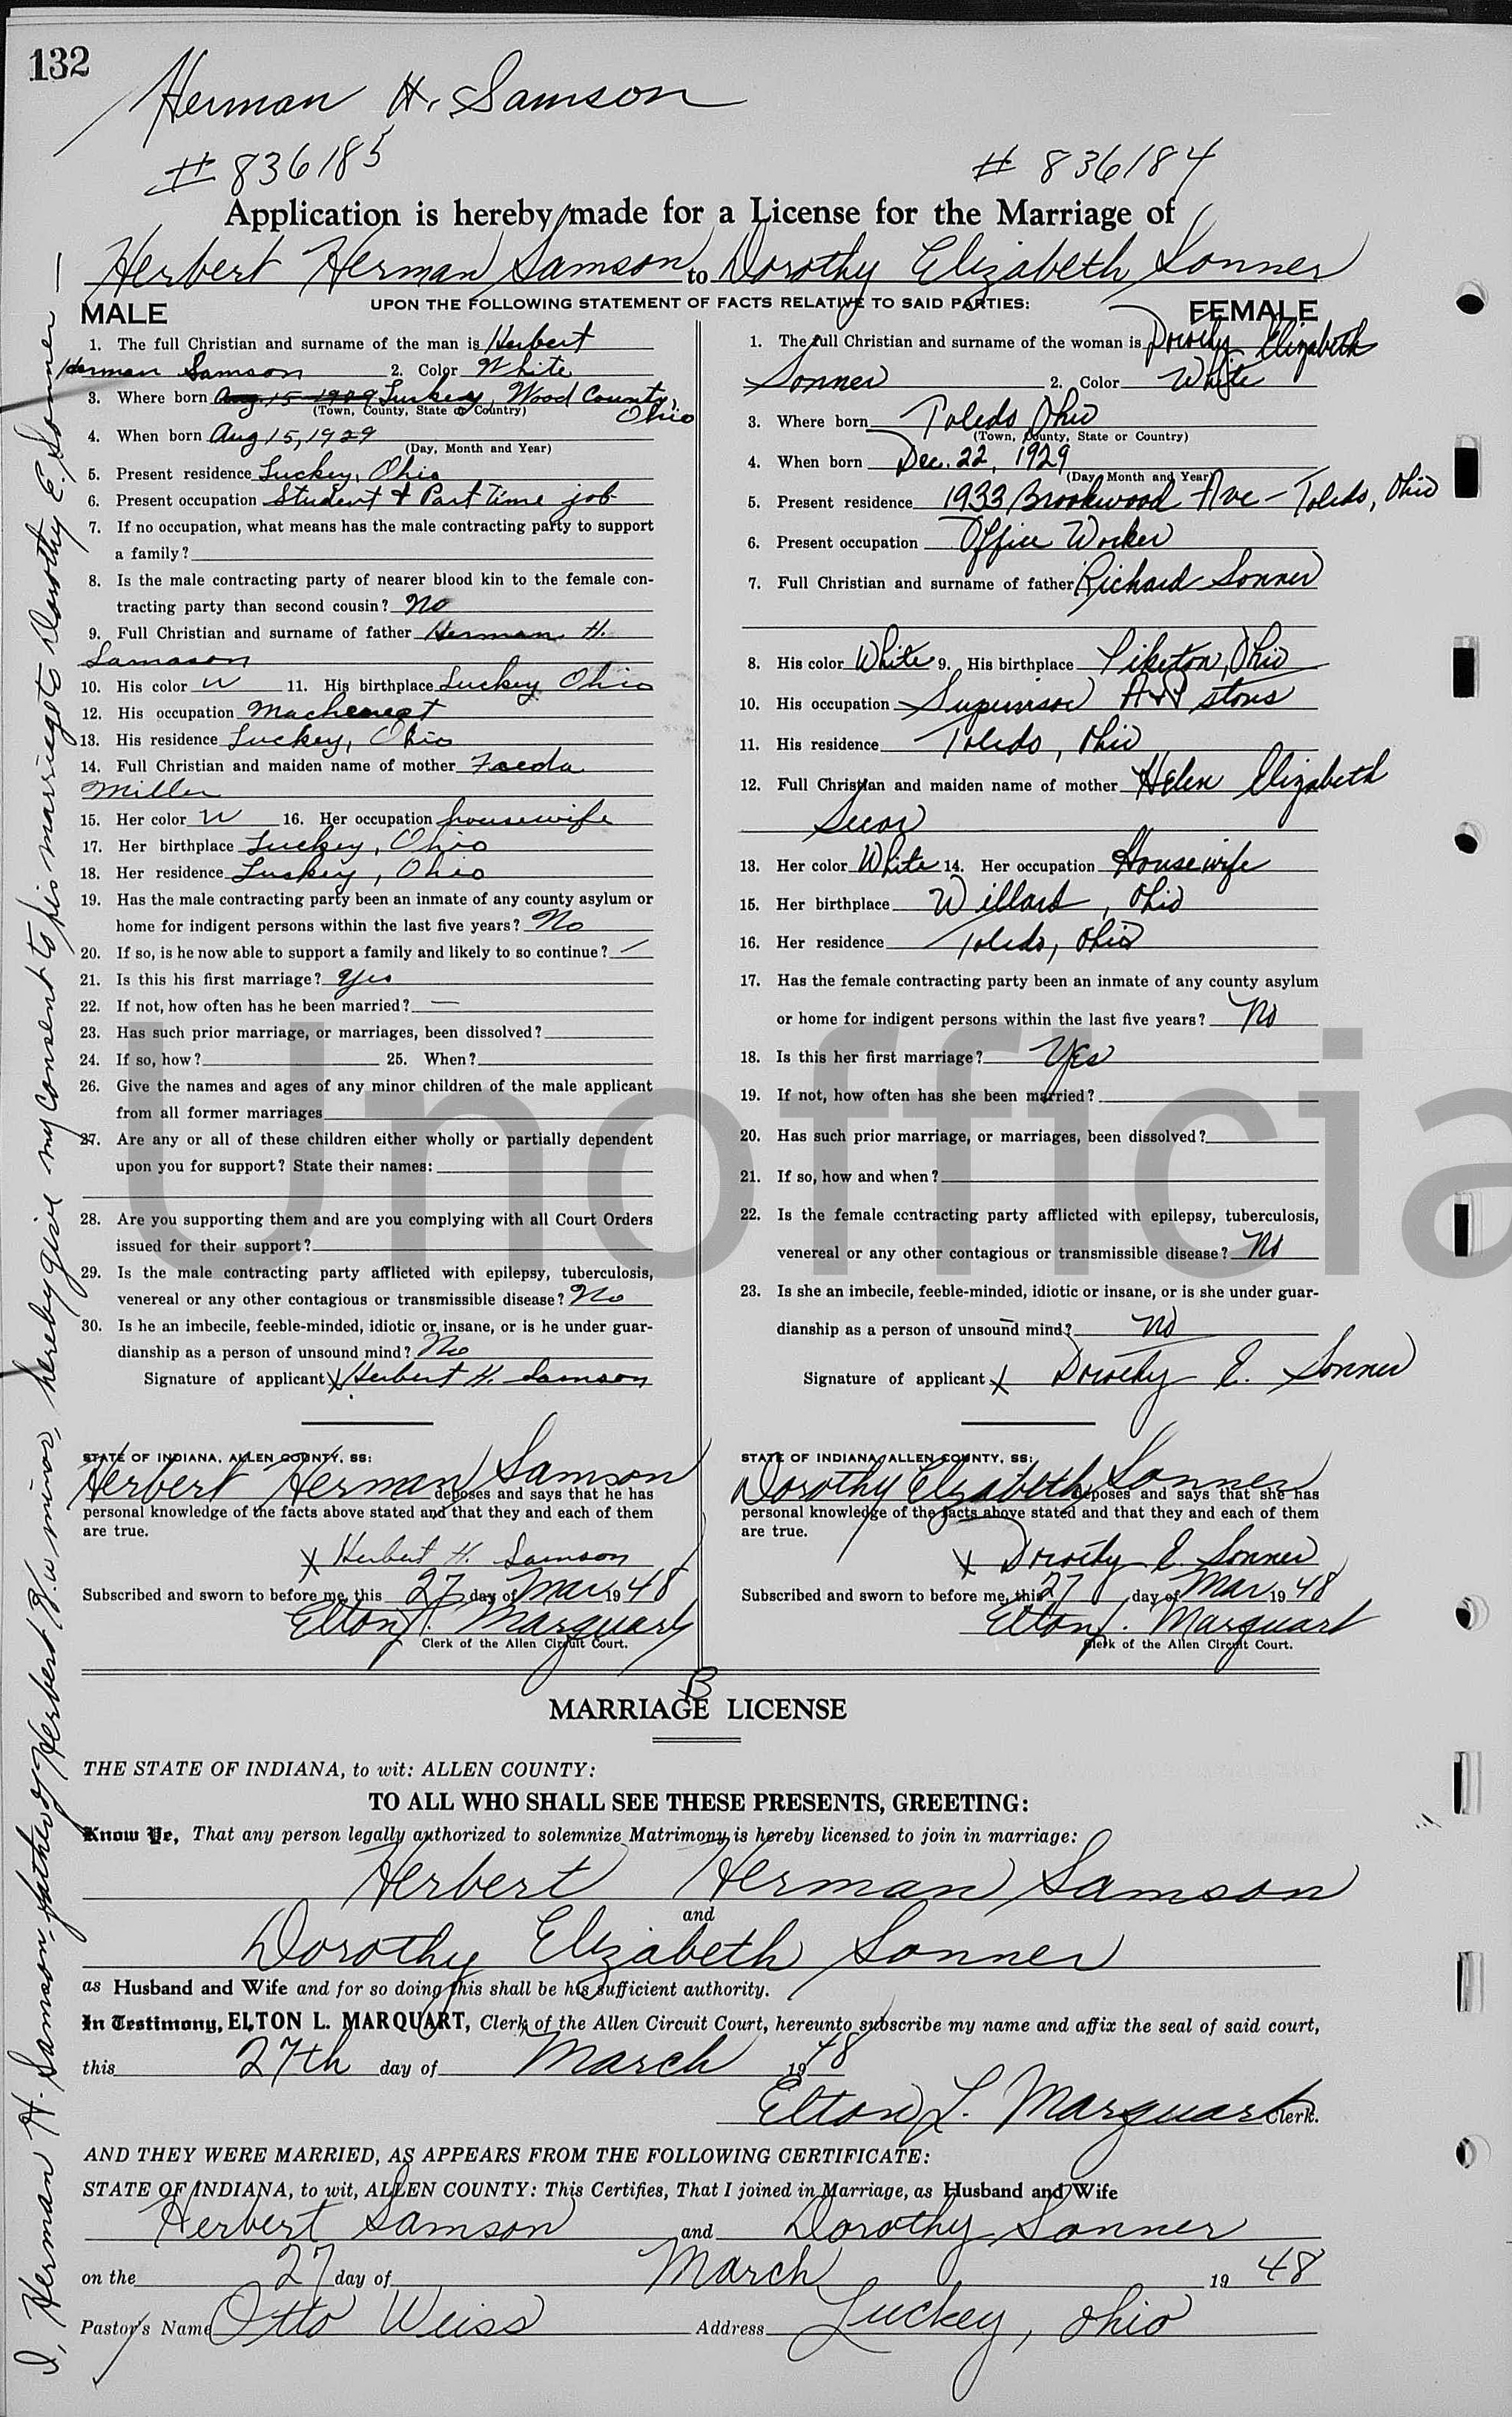 132
Herman H. Samson
# 836185
# 836184
Application is hereby made for a License for the Marriage of
Herbert Herman Samson to Dorothy Elizabeth Sonner
UPON THE FOLLOWING STATEMENT OF FACTS RELATIVE TO SAID PARTIES:
MALE
1. The full Christian and surname of the man is Herbert
Herman Samson 2. Color White
3. Where born Aug 15 1929 Luckey, Wood County,
(Town, County, State or Country) Ohio
4. When born Aug 15, 1929
(Day, Month and Year)
5. Present residence Luckey, Ohio
6. Present occupation Student & Part Time job
7. If no occupation, what means has the male contracting party to support
a family?
8. Is the male contracting party of nearer blood kin to the female con-
tracting party than second cousin? No
9. Full Christian and surname of father Herman H.
Samason
10. His color W 11. His birthplace Luckey Ohio
12. His occupation Machenest
13. His residence Luckey, Ohio
14. Full Christian and maiden name of mother
Miller
15. Her color W 16. Her occupation housewife
17. Her birthplace Luckey, Ohio
18. Her residence Luckey, Ohio
19. Has the male contracting party been an inmate of any county asylum or
home for indigent persons within the last five years? No
20. If so, is he now able to support a family and likely to so continue? —
21. Is this his first marriage? Yes
22. If not, how often has he been married? —
23. Has such prior marriage, or marriages, been dissolved?
24. If so, how? 25. When?
26. Give the names and ages of any minor children of the male applicant
from all former marriages
27. Are any or all of these children either wholly or partially dependent
upon you for support? State their names:
28. Are you supporting them and are you complying with all Court Orders
issued for their support?
29. Is the male contracting party afflicted with epilepsy, tuberculosis,
venereal or any other contagious or transmissible disease? No
30. Is he an imbecile, feeble-minded, idiotic or insane, or is he under guar-
dianship as a person of unsound mind? No
Signature of applicant X Herbert H. Samson
STATE OF INDIANA, ALLEN COUNTY, SS:
Herbert Herman Samson deposes and says that he has
personal knowledge of the facts above stated and that they and each of them
are true.
X Herbert H. Samson
Subscribed and sworn to before me, this 27 day of Mar 1948
Elton L. Marquart
Clerk of the Allen Circuit Court.
FEMALE
1. The full Christian and surname of the woman is Dorothy Elizabeth
Sonner 2. Color White
3. Where born Toledo Ohio
(Town, County, State or Country)
4. When born Dec. 22, 1929
(Day, Month and Year)
5. Present residence 1933 Brookwood Ave - Toledo, Ohio
6. Present occupation Office Worker
7. Full Christian and surname of father Richard Sonner
8. His color White 9. His birthplace Piketon, Ohio
10. His occupation Supervisor A&P stores
11. His residence Toledo, Ohio
12. Full Christian and maiden name of mother Helen Elizabeth
Secor
13. Her color White 14. Her occupation Housewife
15. Her birthplace Willard, Ohio
16. Her residence Toledo, Ohio
17. Has the female contracting party been an inmate of any county asylum
or home for indigent persons within the last five years? No
18. Is this her first marriage? Yes
19. If not, how often has she been married?
20. Has such prior marriage, or marriages, been dissolved?
21. If so, how and when?
22. Is the female contracting party afflicted with epilepsy, tuberculosis,
venereal or any other contagious or transmissible disease? No
23. Is she an imbecile, feeble-minded, idiotic or insane, or is she under guar-
dianship as a person of unsound mind? No
Signature of applicant X Dorothy E. Sonner
STATE OF INDIANA, ALLEN COUNTY, SS:
Dorothy Elizabeth Sonner deposes and says that she has
personal knowledge of the facts above stated and that they and each of them
are true.
X Dorothy E. Sonner
Subscribed and sworn to before me, this 27 day of Mar 1948
Elton L. Marquart
Clerk of the Allen Circuit Court.
B
MARRIAGE LICENSE
THE STATE OF INDIANA, to wit: ALLEN COUNTY:
TO ALL WHO SHALL SEE THESE PRESENTS, GREETING:
Know Ye, That any person legally authorized to solemnize Matrimony is hereby licensed to join in marriage:
Herbert Herman Samson
and
Dorothy Elizabeth Sonner
as Husband and Wife and for so doing this shall be his sufficient authority.
In Testimony, ELTON L. MARQUART, Clerk of the Allen Circuit Court, hereunto subscribe my name and affix the seal of said court,
this 27th day of March 1948
Elton L. Marquart Clerk.
AND THEY WERE MARRIED, AS APPEARS FROM THE FOLLOWING CERTIFICATE:
STATE OF INDIANA, to wit, ALLEN COUNTY: This Certifies, That I joined in Marriage, as Husband and Wife
Herbert Samson and Dorothy Sonner
on the 27 day of March 1948
Pastor's Name Otto Weiss Address Luckey, Ohio
I, Herman H. Samson, father of Herbert H. a minor, hereby give my consent to his marriage to Dorothy E. Sonner —
Unofficia